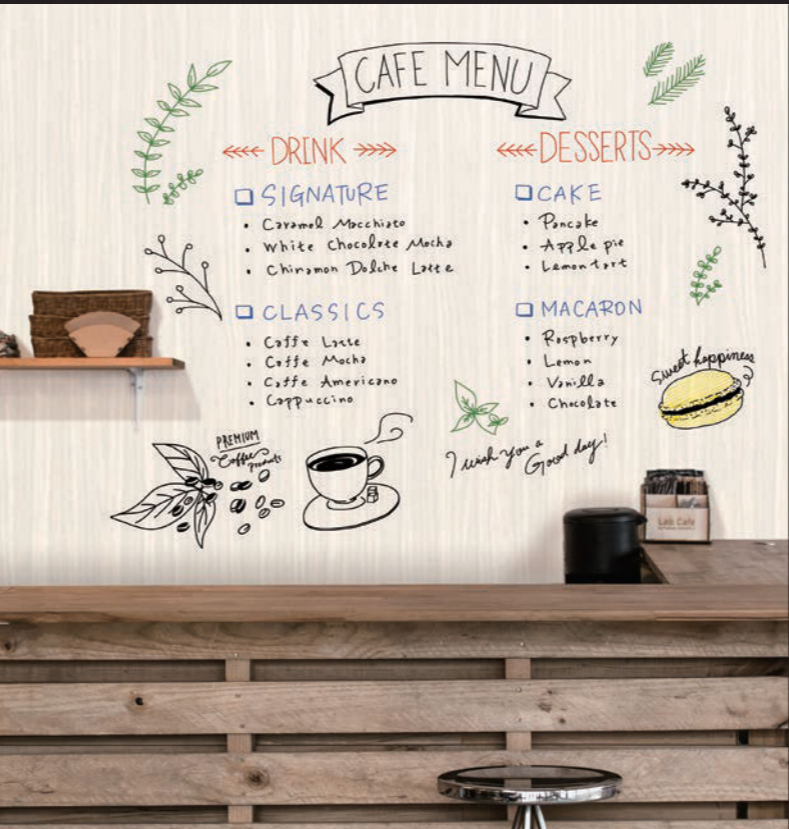 CAFE MENU
DRINK
SIGNATURE
Caramel Macchiato
White Chocolate Mocha
Chinamon Dolche Latte
CLASSICS
Caffe Latte
Caffe Mocha
Caffe Americano
Cappuccino
DESSERTS
CAKE
Pancake
Apple pie
Lemon tart
MACARON
Raspberry
Lemon
Vanilla
Chocolate
Sweet happiness
PREMIUM
Coffee
products
I wish you a
Good day!
Lab Cafe